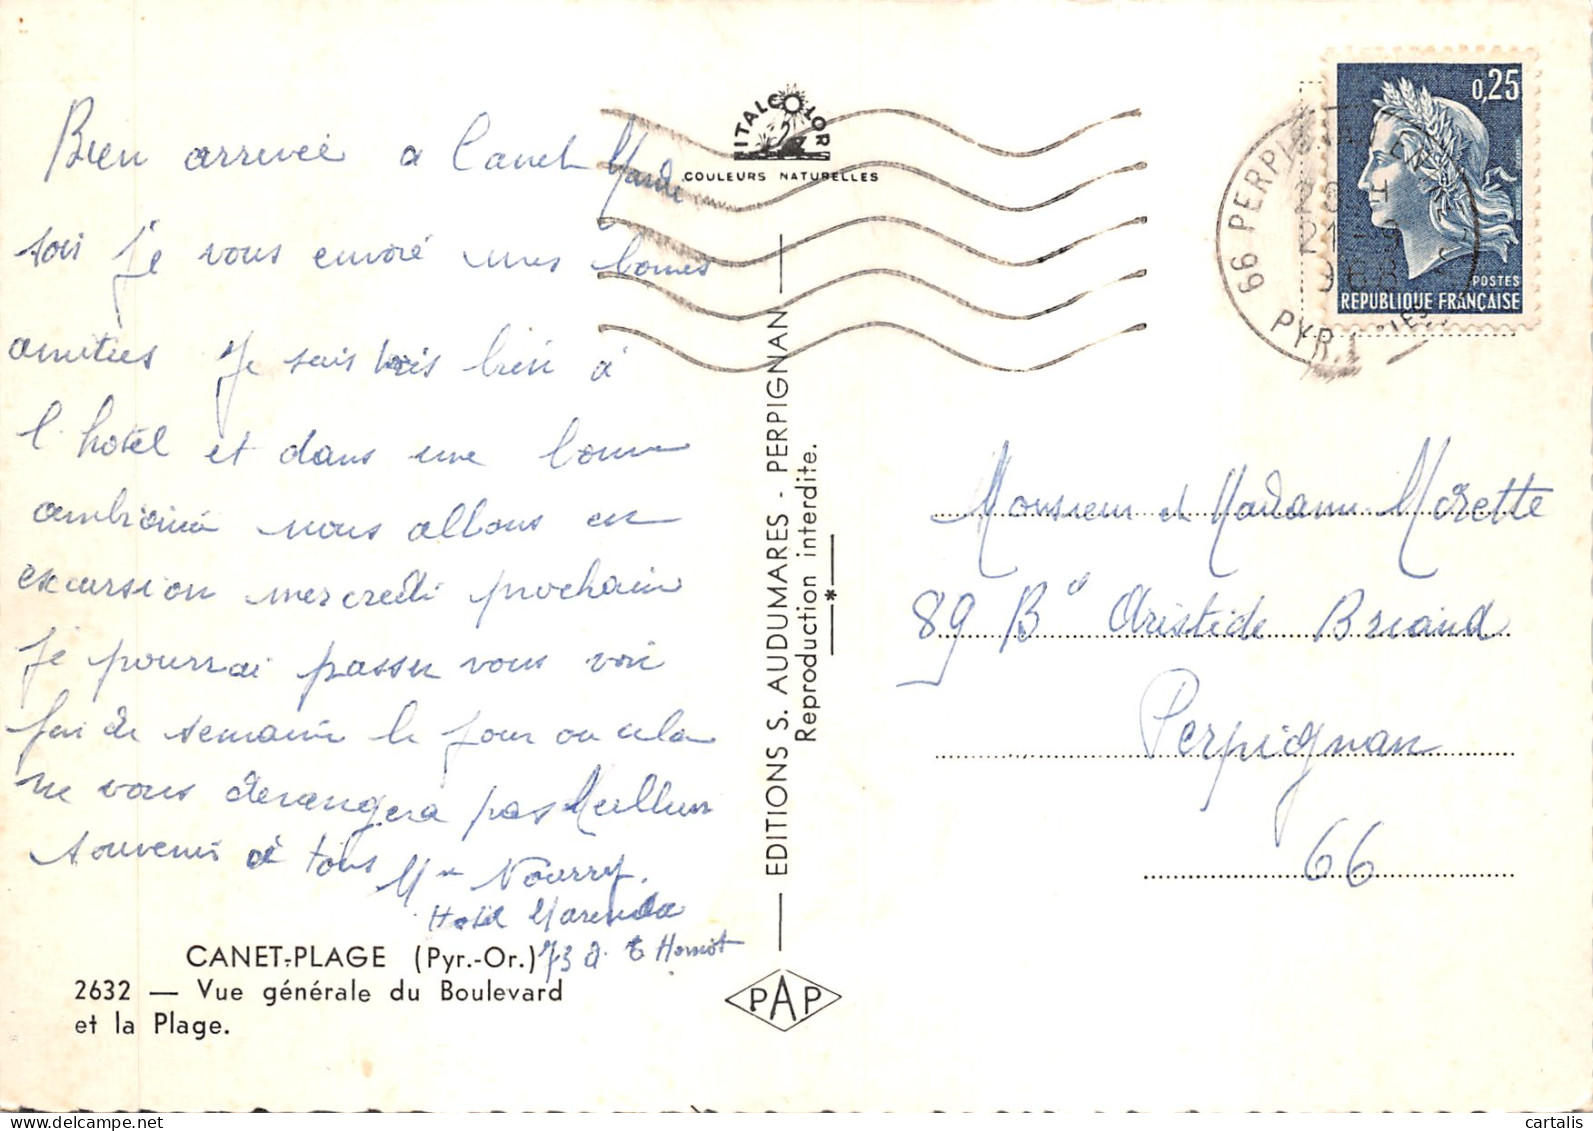 Bien arrivée a Canet Mardi
soir Je vous envoie mes bonnes
amities Je suis très bien à
l'hotel et dans une bonne
ambiance nous allons en
excursion mercredi prochain
Je pourrai passer vous voir
fin de semaine le jour ou cela
ne vous derangera pas Meilleur
souvenir à tous
Mme Nourry.
Hotel Marenda
CANET-PLAGE (Pyr.-Or.)
2632 — Vue générale du Boulevard
et la Plage.
ITALCOLOR
COULEURS NATURELLES
EDITIONS S. AUDUMARES - PERPIGNAN
Reproduction interdite.
PAP
66 PERPIGNAN
21-9
1968
PYR. ORIENTALES
0,25
POSTES
REPUBLIQUE FRANÇAISE
Monsieur et Madame Morette
89 Bd Aristide Briand
Perpignan
66
www.delcampe.net
cartalis